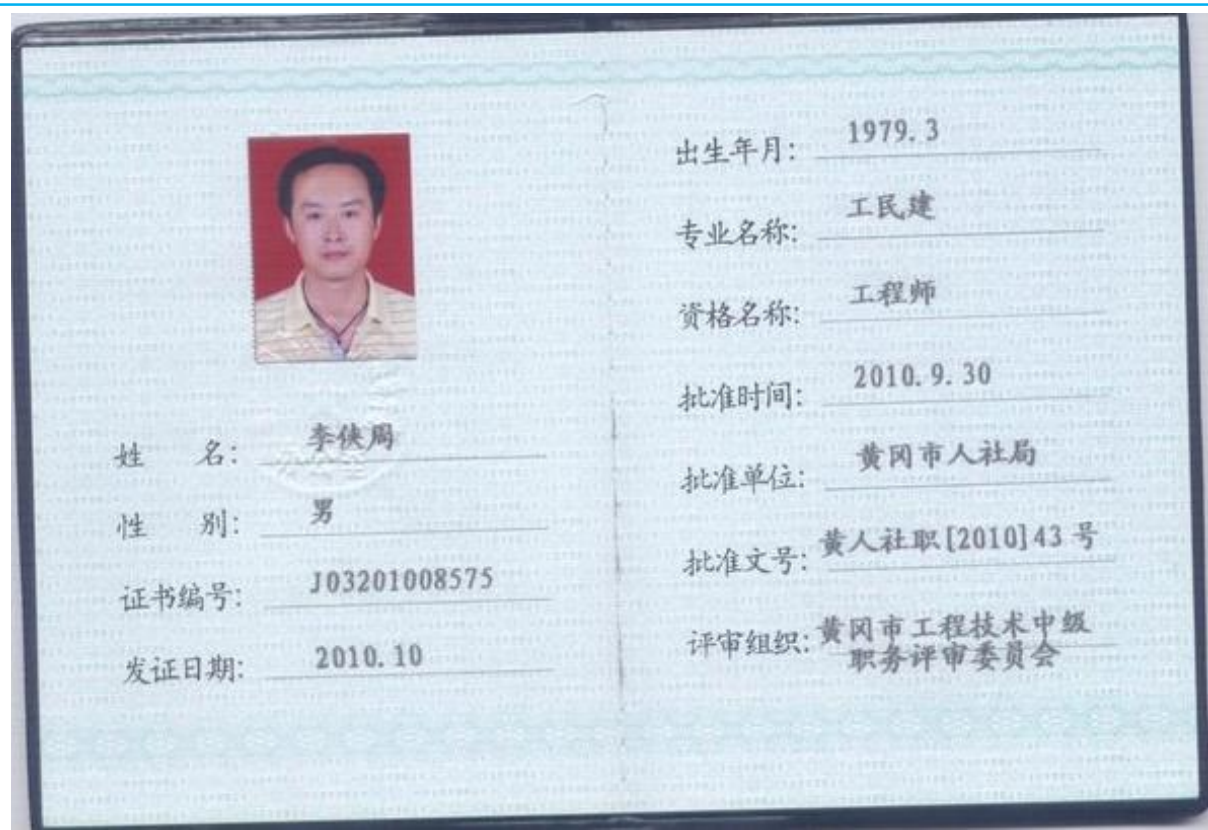 姓 名: 李侠周
性 别: 男
证书编号: J03201008575
发证日期: 2010.10
出生年月: 1979.3
专业名称: 工民建
资格名称: 工程师
批准时间: 2010.9.30
批准单位: 黄冈市人社局
批准文号: 黄人社职[2010]43 号
评审组织: 黄冈市工程技术中级
职务评审委员会